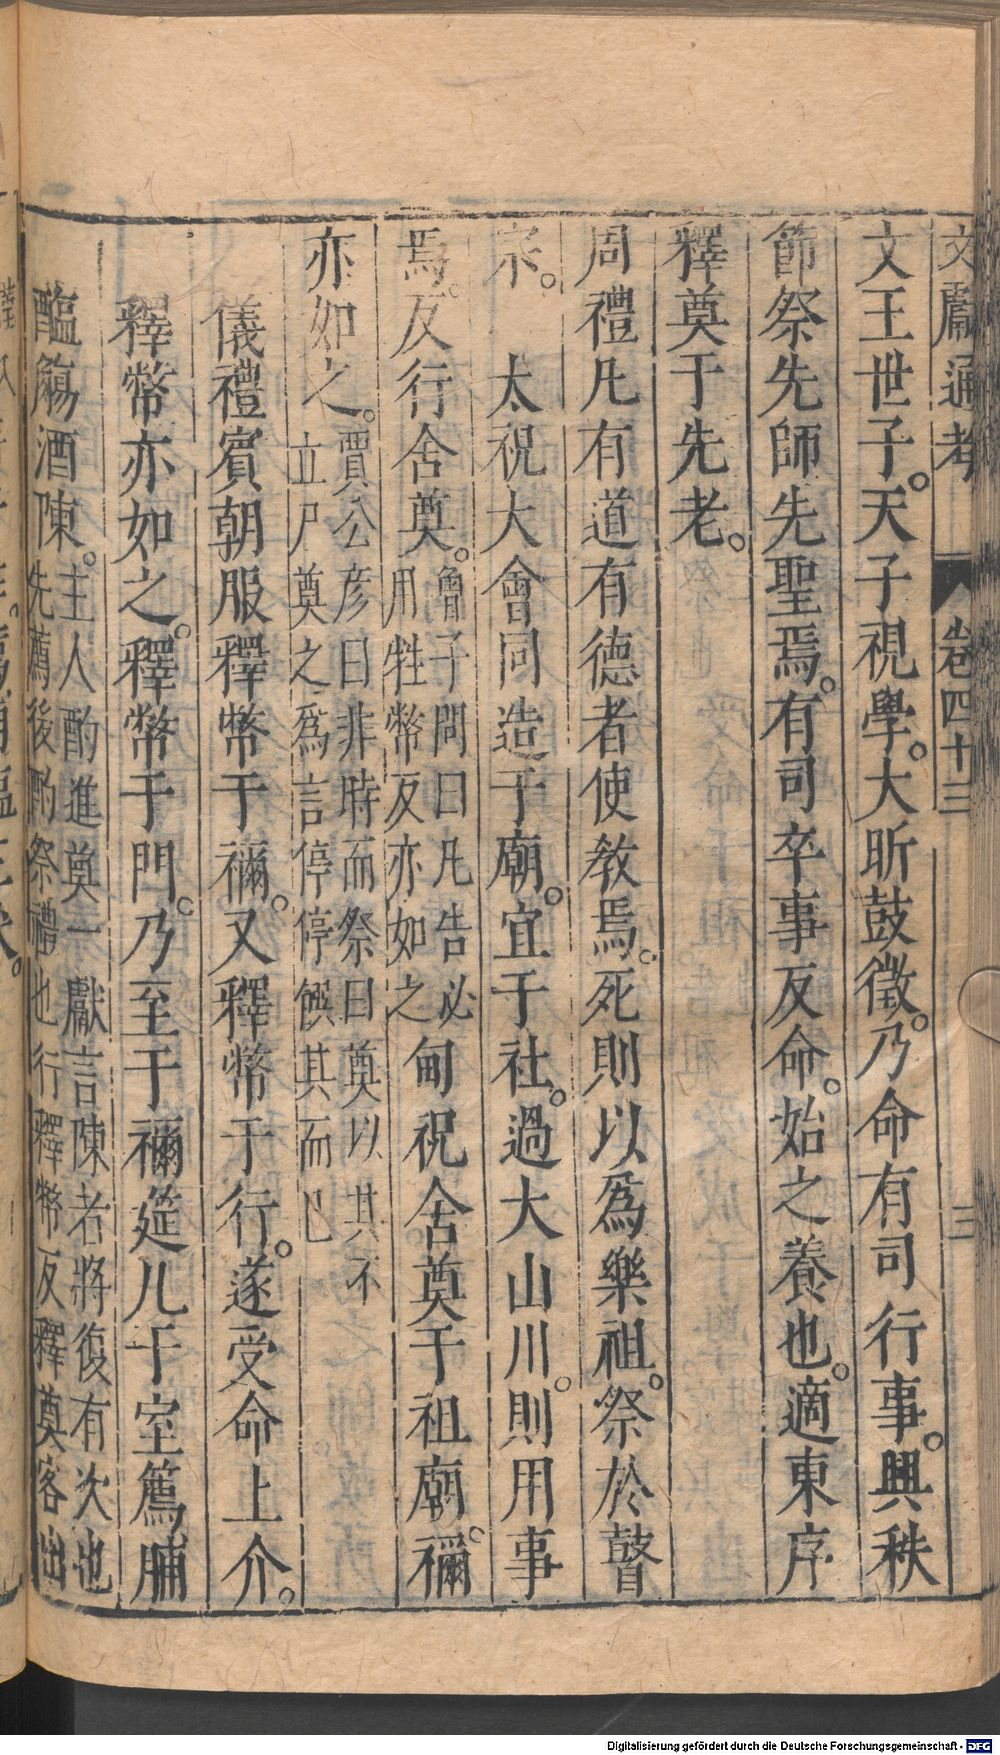 文獻通考 卷四十三 三
文王世子。天子視學。大昕鼓徵。乃命有司行事。興秩
節祭先師先聖焉。有司卒事反命。始之養也。適東序
釋奠于先老。
周禮凡有道有德者使教焉。死則以爲樂祖。祭於瞽
宗。 太祝大會同造于廟。宜于社。過大山川。則用事
焉。反行舍奠。
曾子問曰凡告必
用牲幣反亦如之
甸祝舍奠于祖廟。禰
亦如之。
賈公彦曰非時而祭曰奠以其不
立尸奠之爲言停停饌其而已
儀禮賓朝服釋幣于禰。又釋幣于行。遂受命上介。
釋幣亦如之。釋幣于門。乃至于禰筵几于室薦脯
醢觴酒陳。
主人酌進奠一獻言陳者將復有次也
先薦後酌祭禮也行釋幣反釋奠客出
Digitalisierung gefördert durch die Deutsche Forschungsgemeinschaft - DFG